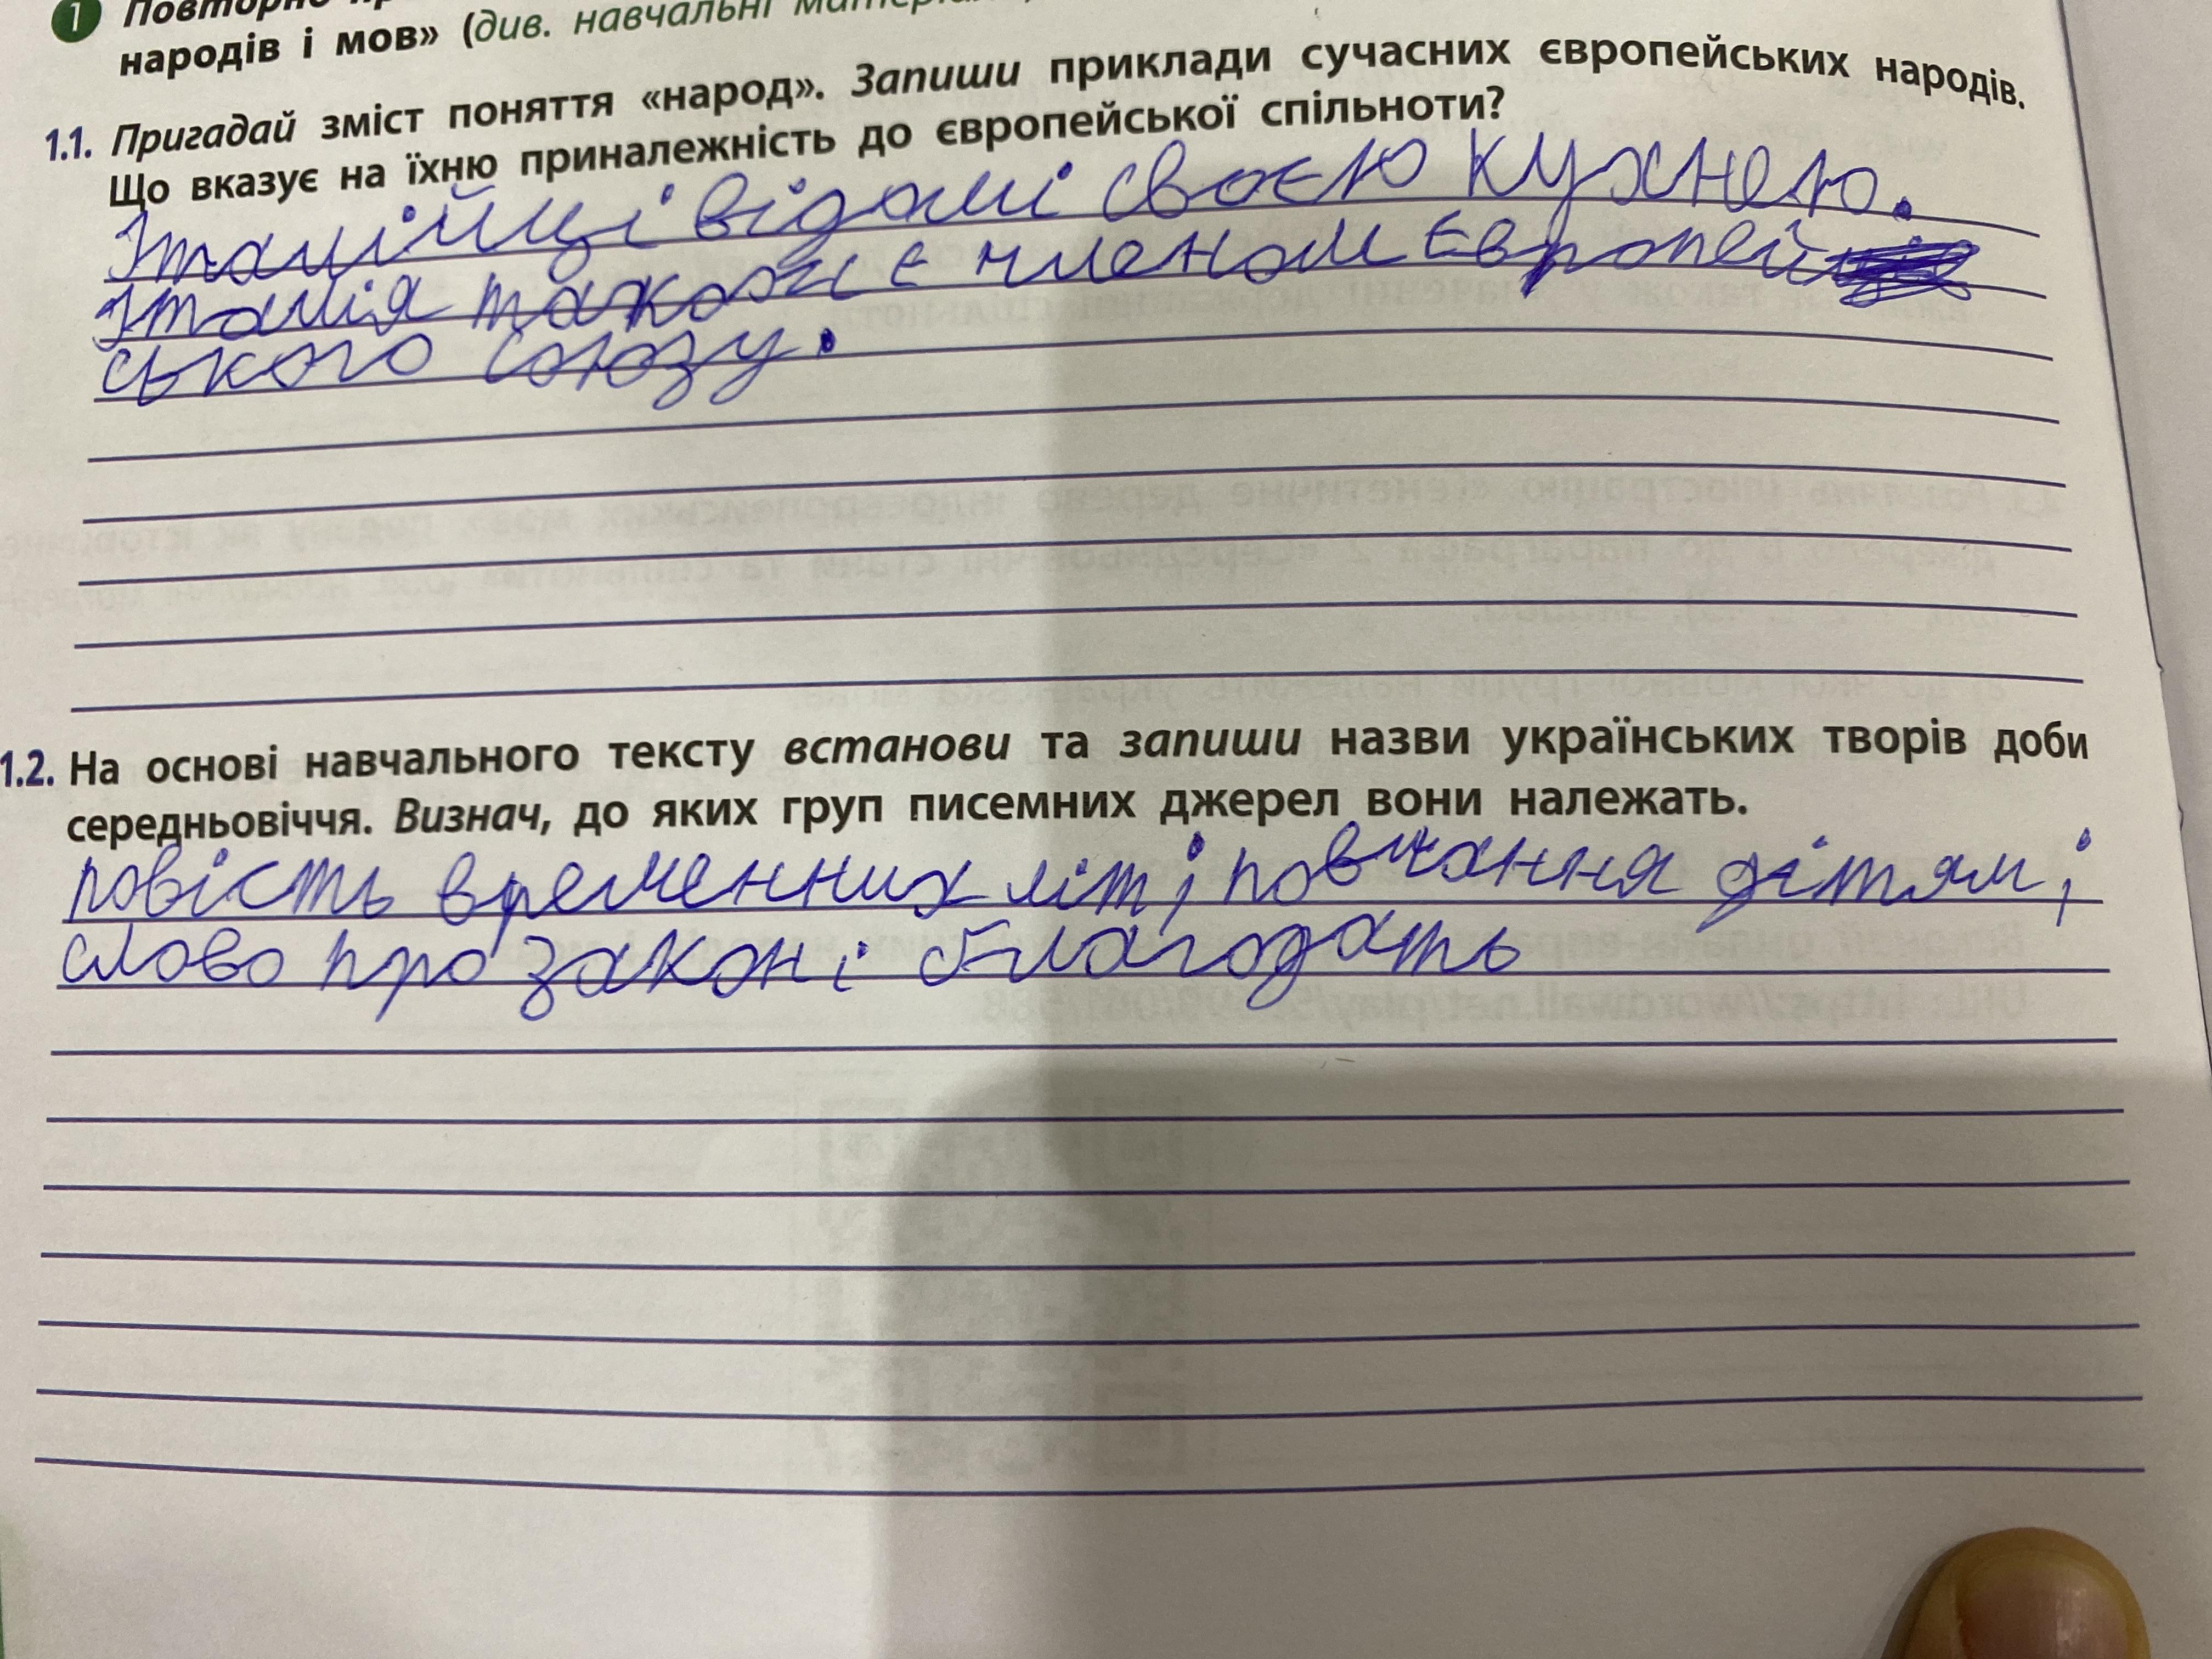 1 Повторно
народів і мов» (див. навчальні
1.1. Пригадай зміст поняття «народ». Запиши приклади сучасних європейських народів.
Що вказує на їхню приналежність до європейської спільноти?
Італійці відомі своєю кухнею.
Італія також є членом Європей
ського союзу.
1.2. На основі навчального тексту встанови та запиши назви українських творів доби
середньовіччя. Визнач, до яких груп писемних джерел вони належать.
повість временних літ; повчання дітям;
слово про закон і благодать